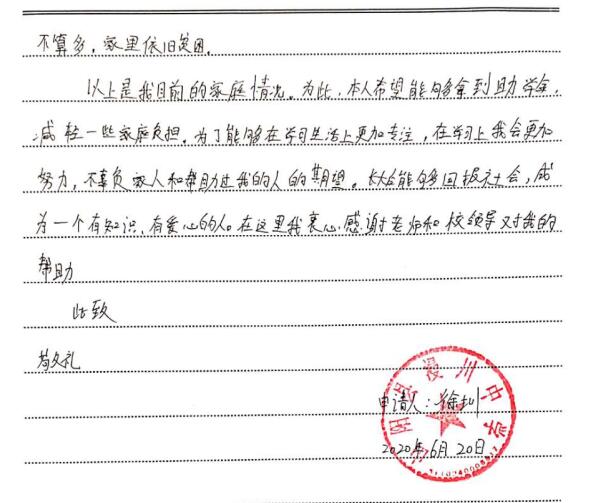 不算多,家里依旧贫困。
以上是我目前的家庭情况。为此,本人希望能够拿到助学金,
减轻一些家庭负担。为了能够在学习生活上更加专注,在学习上我会更加
努力,不辜负家人和帮助过我的人的期望。长大后能够回报社会,成
为一个有知识,有爱心的人。在这里我衷心感谢老师和校领导对我的
帮助
此致
敬礼
川中
申请人:徐
2020年6月20日